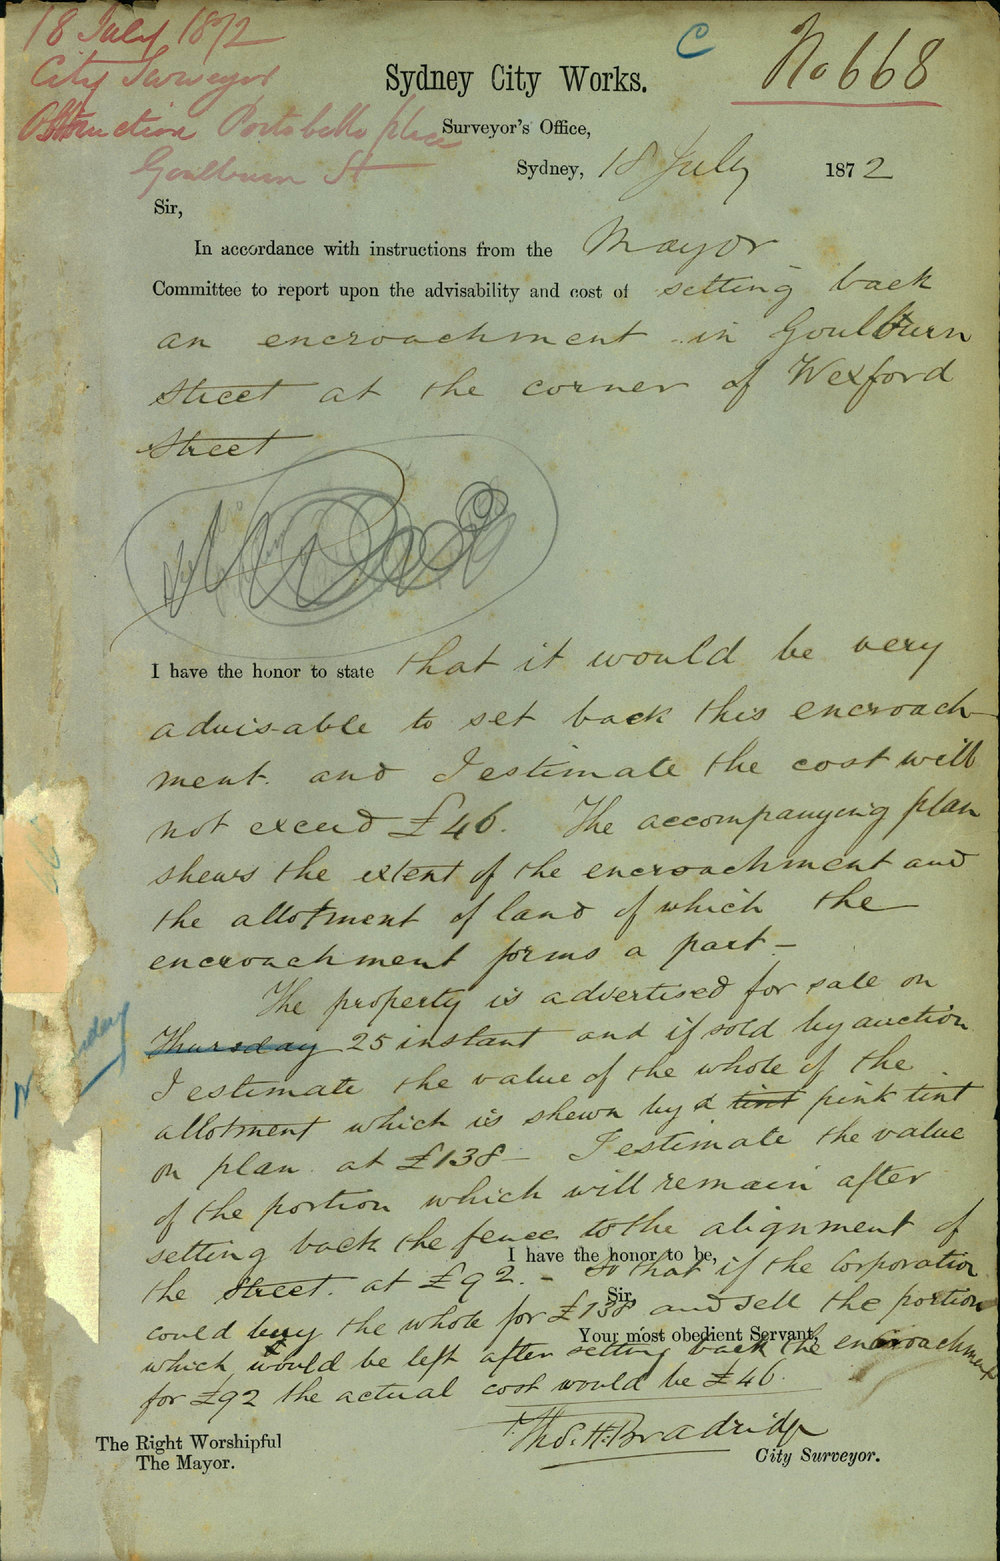 18 July 1872
City Surveyor
Obstruction Portobello place
Goulburn St
C
No 668
Sydney City Works.
Surveyor's Office,
Sydney, 18 July 1872
Sir,
In accordance with instructions from the Mayor
Committee to report upon the advisability and cost of setting back
an encroachment in Goulburn
Street at the corner of Wexford
Street
I have the honor to state that it would be very
advisable to set back this encroach-
ment. and I estimate the cost will
not exceed £46. The accompanying plan
shews the extent of the encroachment and
the allotment of land of which the
encroachment forms a part —
The property is advertised for sale on
Thursday 25 instant and if sold by auction
I estimate the value of the whole of the
allotment which is shewn by a tint pink tint
on plan. at £138 — I estimate the value
of the portion which will remain after
setting back the fence to the alignment of
I have the honor to be,
the Street. at £92. — So that if the Corporation
Sir,
could buy the whole for £138 and sell the portion
Your most obedient Servant,
which would be left after setting back the encroachment
for £92 the actual cost would be £46.
Thos. H. Bradridge
City Surveyor.
The Right Worshipful
The Mayor.